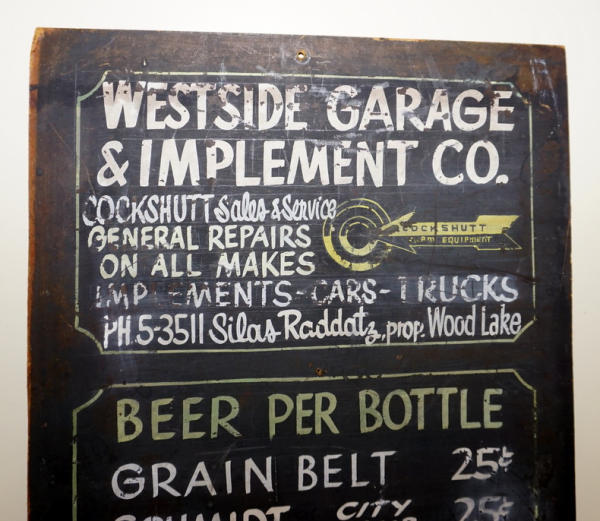 WESTSIDE GARAGE
& IMPLEMENT CO.
COCKSHUTT Sales & Service
GENERAL REPAIRS
ON ALL MAKES
COCKSHUTT
FARM EQUIPMENT
IMPLEMENTS-CARS-TRUCKS
PH. 5-3511 Silas Raddatz, prop. Wood Lake
BEER PER BOTTLE
GRAIN BELT 25¢
SCHMIDT CITY 25¢